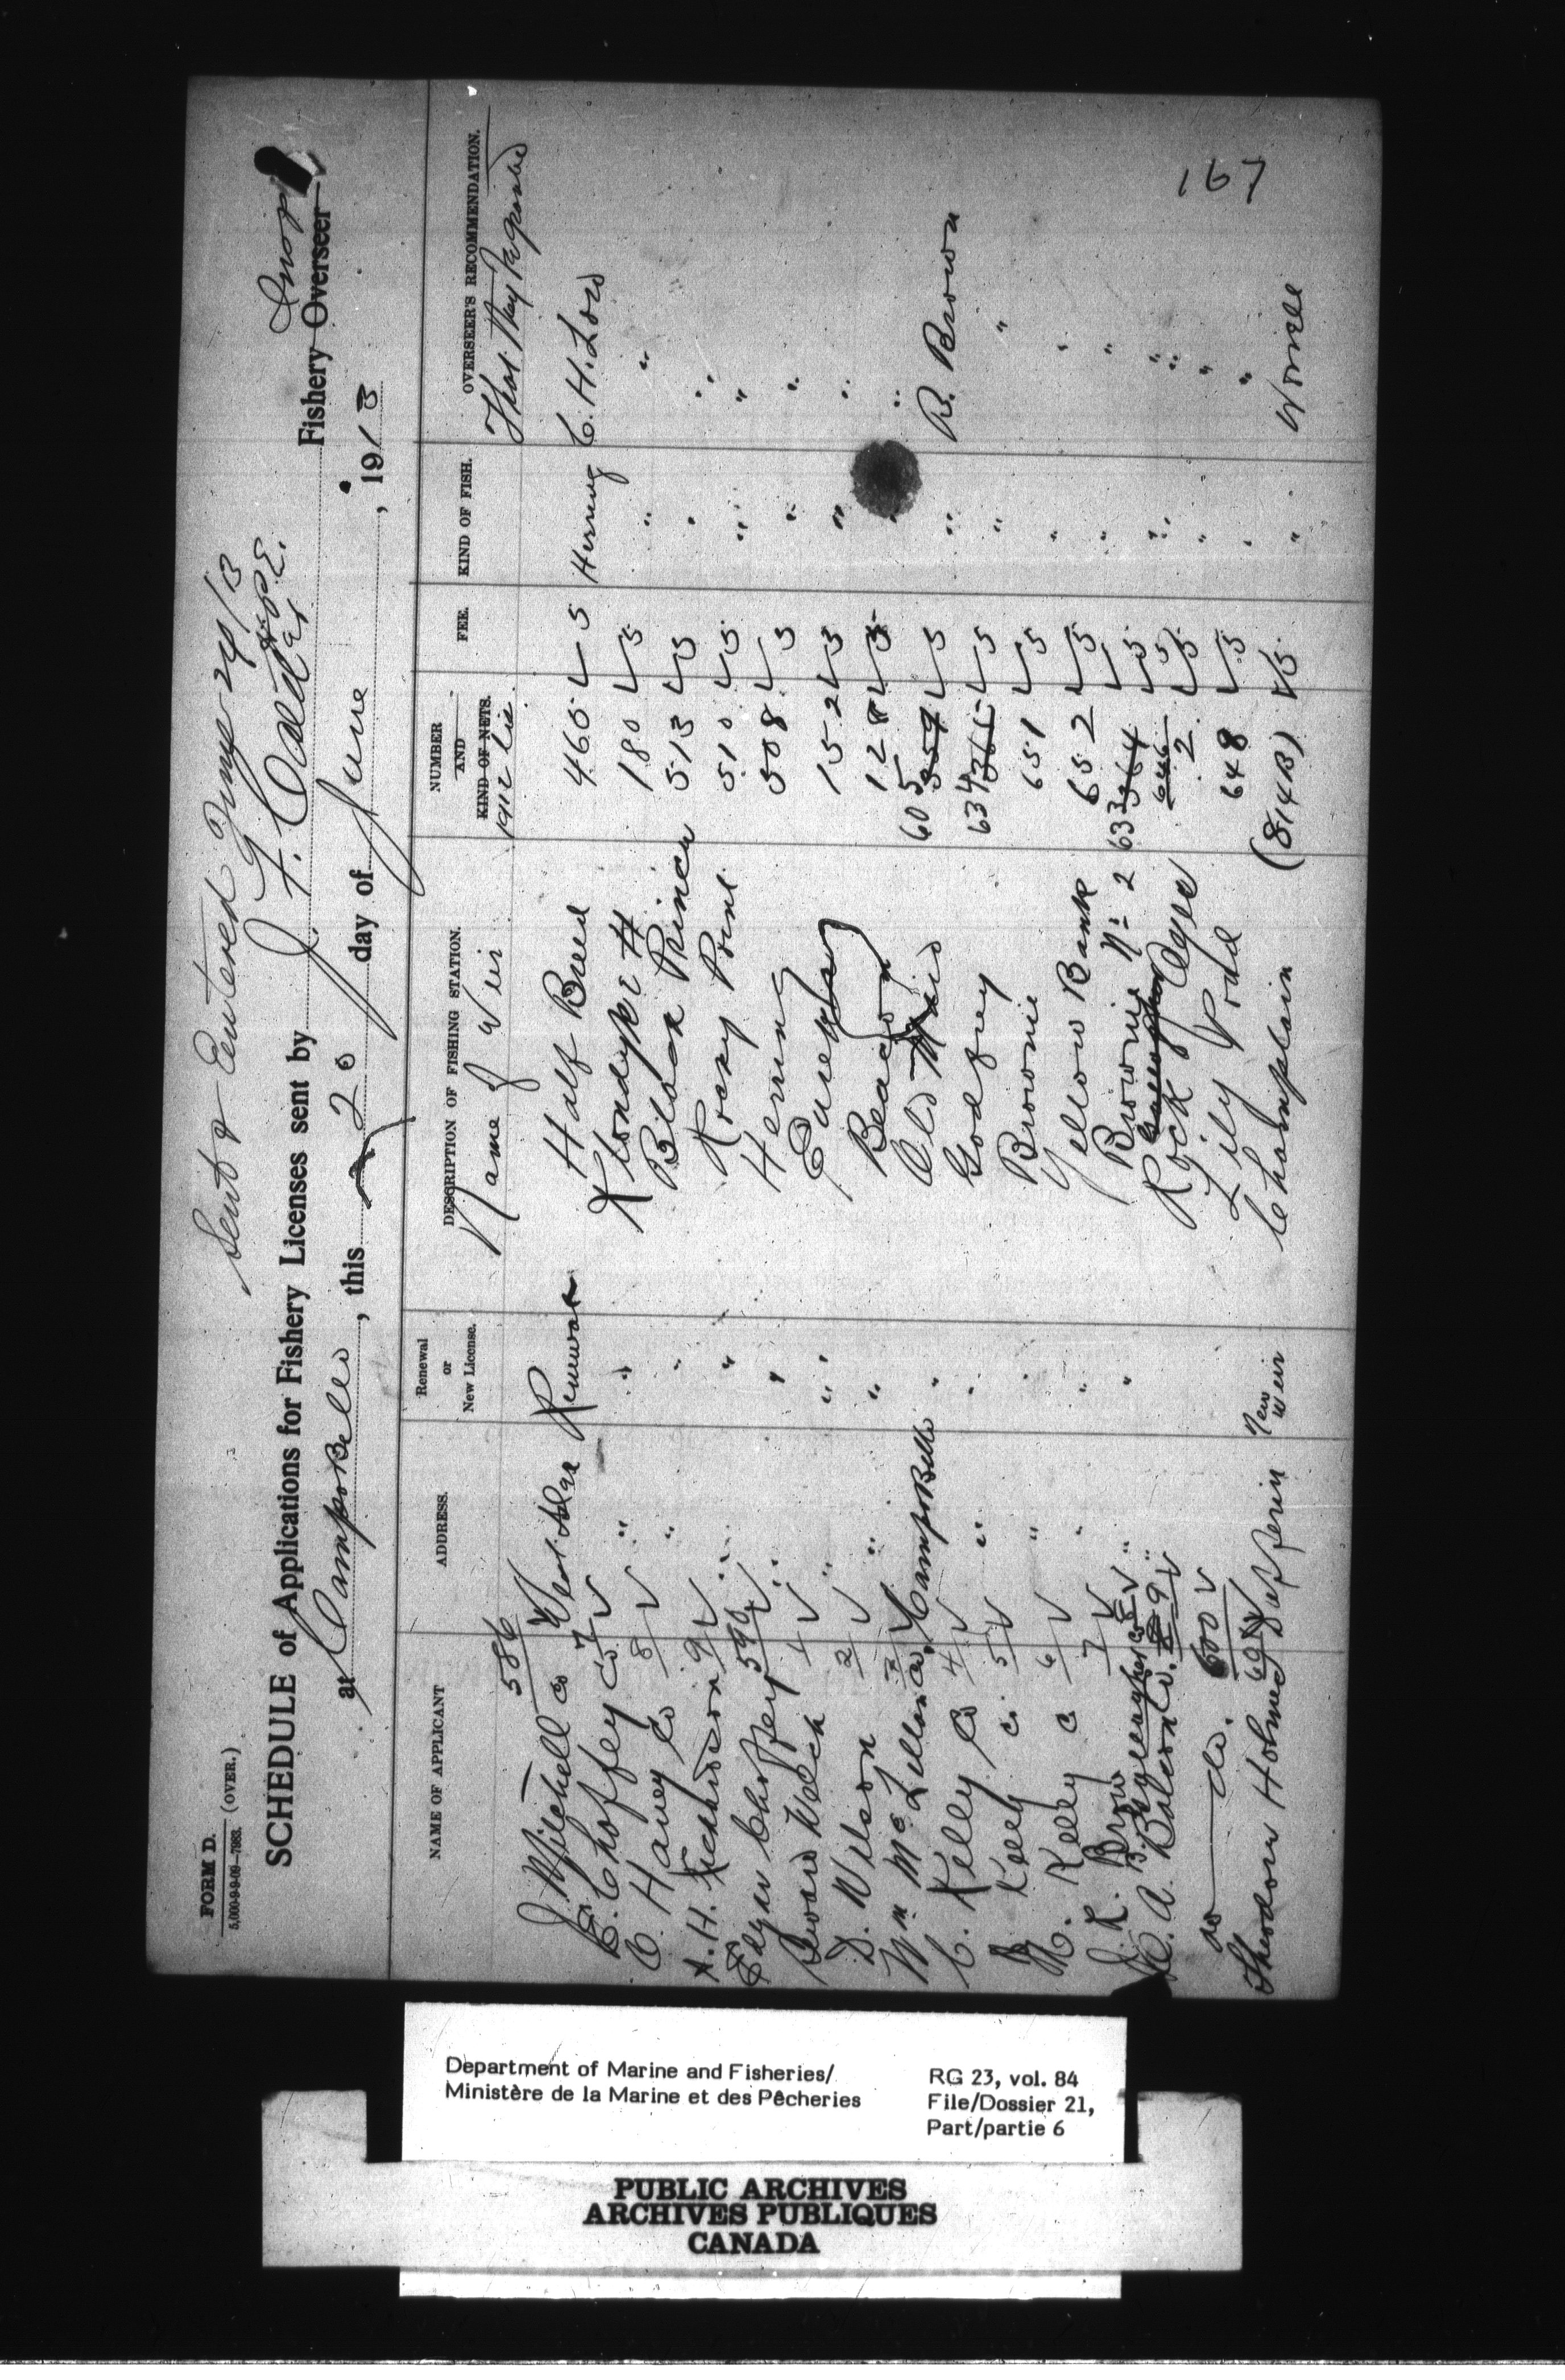 FORM D.
5,000-9-9-09—7983.
(OVER.)
Sent & Entered June 24/13
SCHEDULE of Applications for Fishery Licenses sent by J. F. Calder Fishery Overseer
at CampoBello, this 20 day of June, 1913
NAME OF APPLICANT
ADDRESS.
Renewal
or
New License.
DESCRIPTION OF FISHING STATION.
NUMBER
AND
KIND OF NETS.
FEE.
KIND OF FISH.
OVERSEER'S RECOMMENDATION.
Name of Weir
1912 Lic.
That they be granted
586
J. Mitchell Co West Isles Renewal Half Breed 465 5 Herring C. H. Lord
E. Chaffey Co 7 Klondyke # 180 5 "
C. Haney Co 8 " " " Black Prince 513 5 " "
A. H. Richardson 9 " " Rocky Point 510 5 " "
Edgar Chaffey 590 " " Herring 508 5 " "
Welch 1 " " Eureka 152 5 " "
D. Wilson 2 " " Beacon 128 5 " "
Wm McLellan Co. 3 CampoBello " Old Maid 605 359 5 " B. Brown
C. Kelly Co 4 " " Godfrey 634 5 " "
Kelly Co 5 " " Brownie 651 5 " "
Kelly C 6 " " Yellow Bank 652 5 " "
J. R. Brow 7 " " Brownie No 2 633 364 5 " "
B. Co 8 " 646 5 " "
A. Balcom Co. 9 " Rock Ages 2 5 " "
do — do. 600 Lily Todd 648 5 " "
Theodore Holmes Dufferin New Weir Champlain (814B) 5 "
167
Department of Marine and Fisheries/
Ministère de la Marine et des Pêcheries
RG 23, vol. 84
File/Dossier 21,
Part/partie 6
PUBLIC ARCHIVES
ARCHIVES PUBLIQUES
CANADA